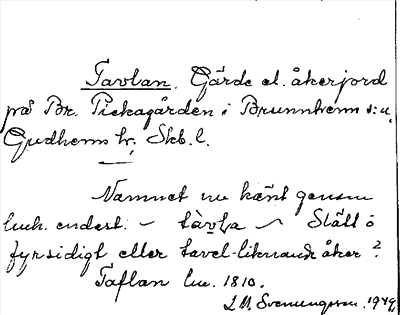 Tavlan. Gärde el. åkerjord
på Br. Pickagården i Brunnhem s:n,
Gudhems hr, Skb. l.
Namnet nu känt genom
luch. endest. – tàvla – Slätt o
fyrsidigt eller tavel-liknande åker?
Taflan lu. 1810.
L M. Svenungsson. 1949